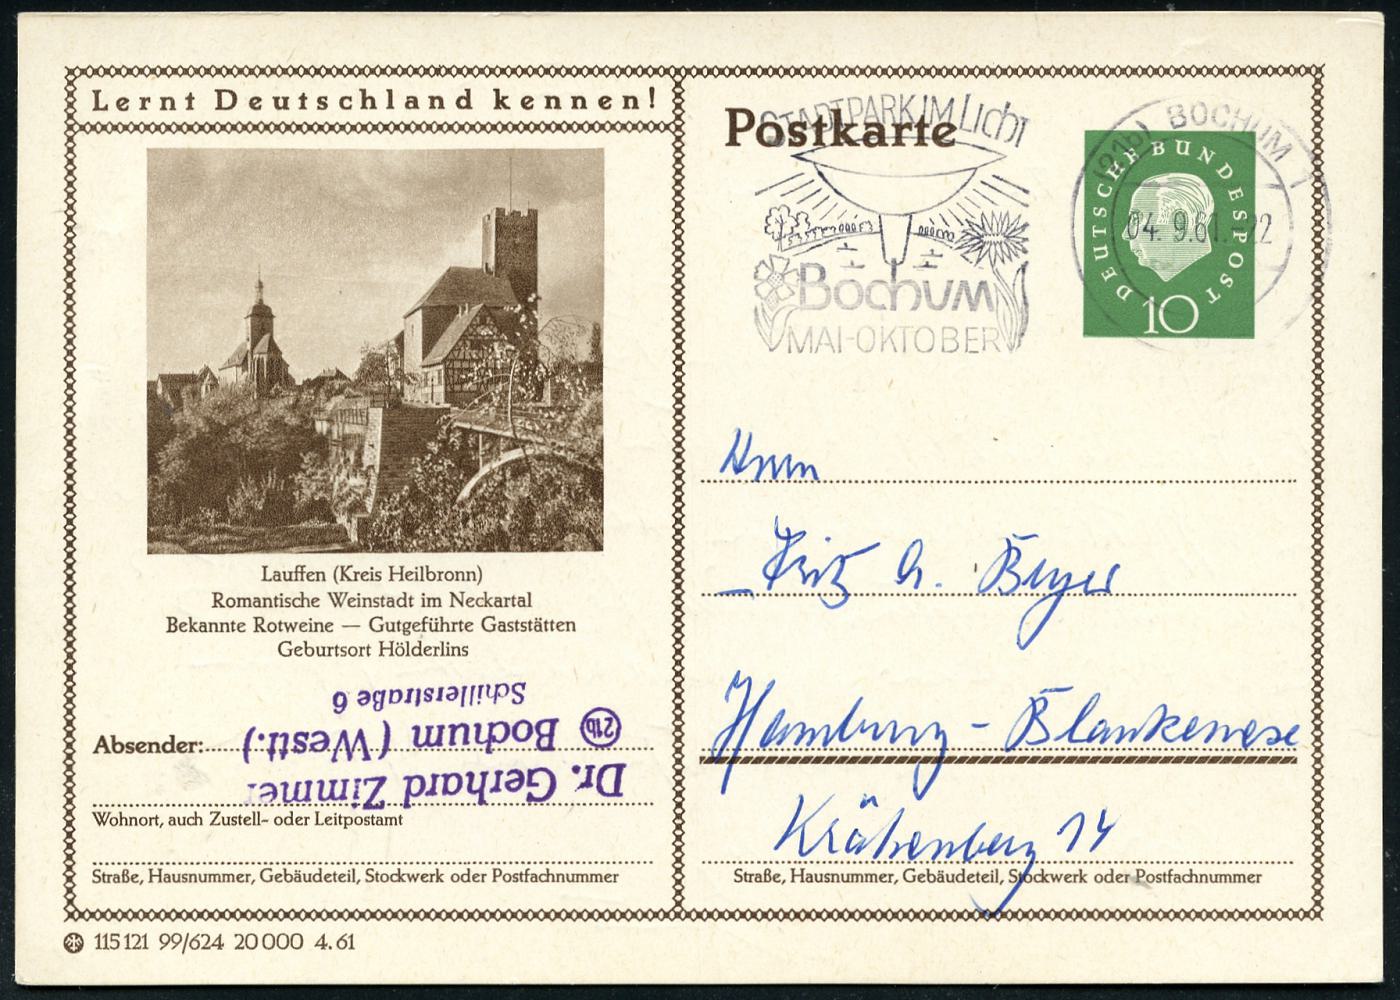 Lernt Deutschland kennen!
Lauffen (Kreis Heilbronn)
Romantische Weinstadt im Neckartal
Bekannte Rotweine — Gutgeführte Gaststätten
Geburtsort Hölderlins
Absender:
Dr. Gerhard Zimmer
21b Bochum (Westf.)
Schillerstraße 6
Wohnort, auch Zustell- oder Leitpostamt
Straße, Hausnummer, Gebäudeteil, Stockwerk oder Postfachnummer
115121 99/624 20000 4.61
Postkarte
STADTPARK IM Licht
Bochum
MAI-OKTOBER
(21b) BOCHUM 1
04. 9.61.-22
DEUTSCHE BUNDESPOST
10
Herrn
Fritz G. Beyer
Hamburg - Blankenese
Krähenberg 14
Straße, Hausnummer, Gebäudeteil, Stockwerk oder Postfachnummer